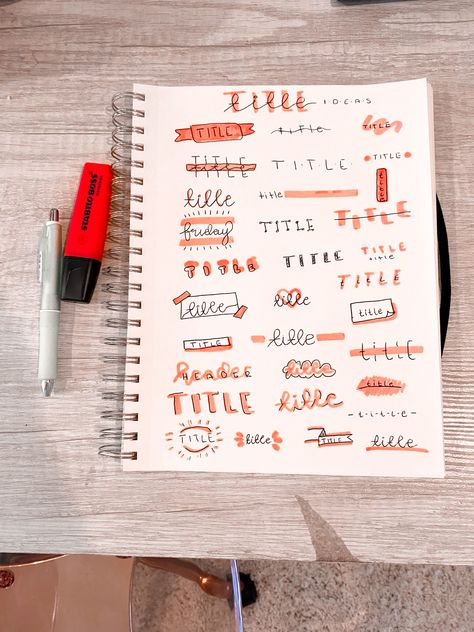 TITLE title IDEAS
TITLE title TITLE
TITLE TITLE T·I·T·L·E· TITLE
title title title
TITLE
friday TITLE
TITLE TITLE TITLE title
TITLE
title title title
TITLE title title
Header HEADER title title
TITLE title -t-i-t-l-e-
TITLE title TITLE title
STABILO BOSS